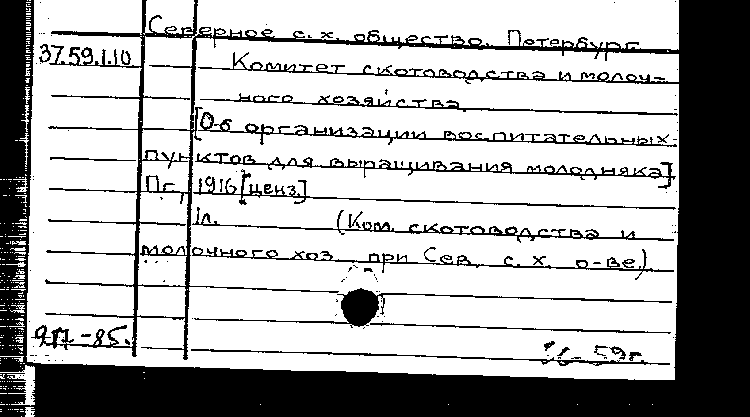 Северное с.х. общество. Петербург
37.59.1.10
Комитет скотоводства и молоч-
ного хозяйства.
[Об организации воспитательных
пунктов для выращивания молодняка]
Пг., 1916 [ценз.]
1л. (Ком. скотоводства и
молочного хоз. при Сев. с. х. о-ве.)
-85. -59г.